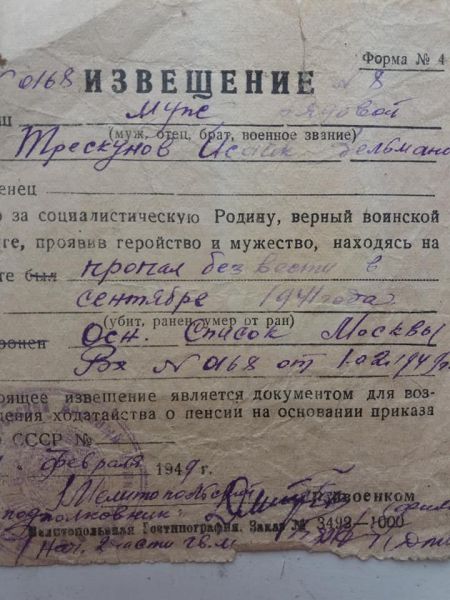 Форма № 4
№ 0168 ИЗВЕЩЕНИЕ № 8
ш муж рядовой
(муж, отец, брат, военное звание)
Трескунов Исаак
енец
о за социалистическую Родину, верный воинской
ге, проявив геройство и мужество, находясь на
те был пропал без вести в
сентябре 1941 года
(убит, ранен, умер от ран)
ронен Осн. Список Москвы
Вх № 0168 от 1.02.1949
оящее извещение является документом для воз-
дения ходатайства о пенсии на основании приказа
О СССР №
февраля 1949 г.
Мелитопольский
райвоенком
подполковник
Мелитопольская Гостипография. Заказ № 3492—1000
Нач. 2 части